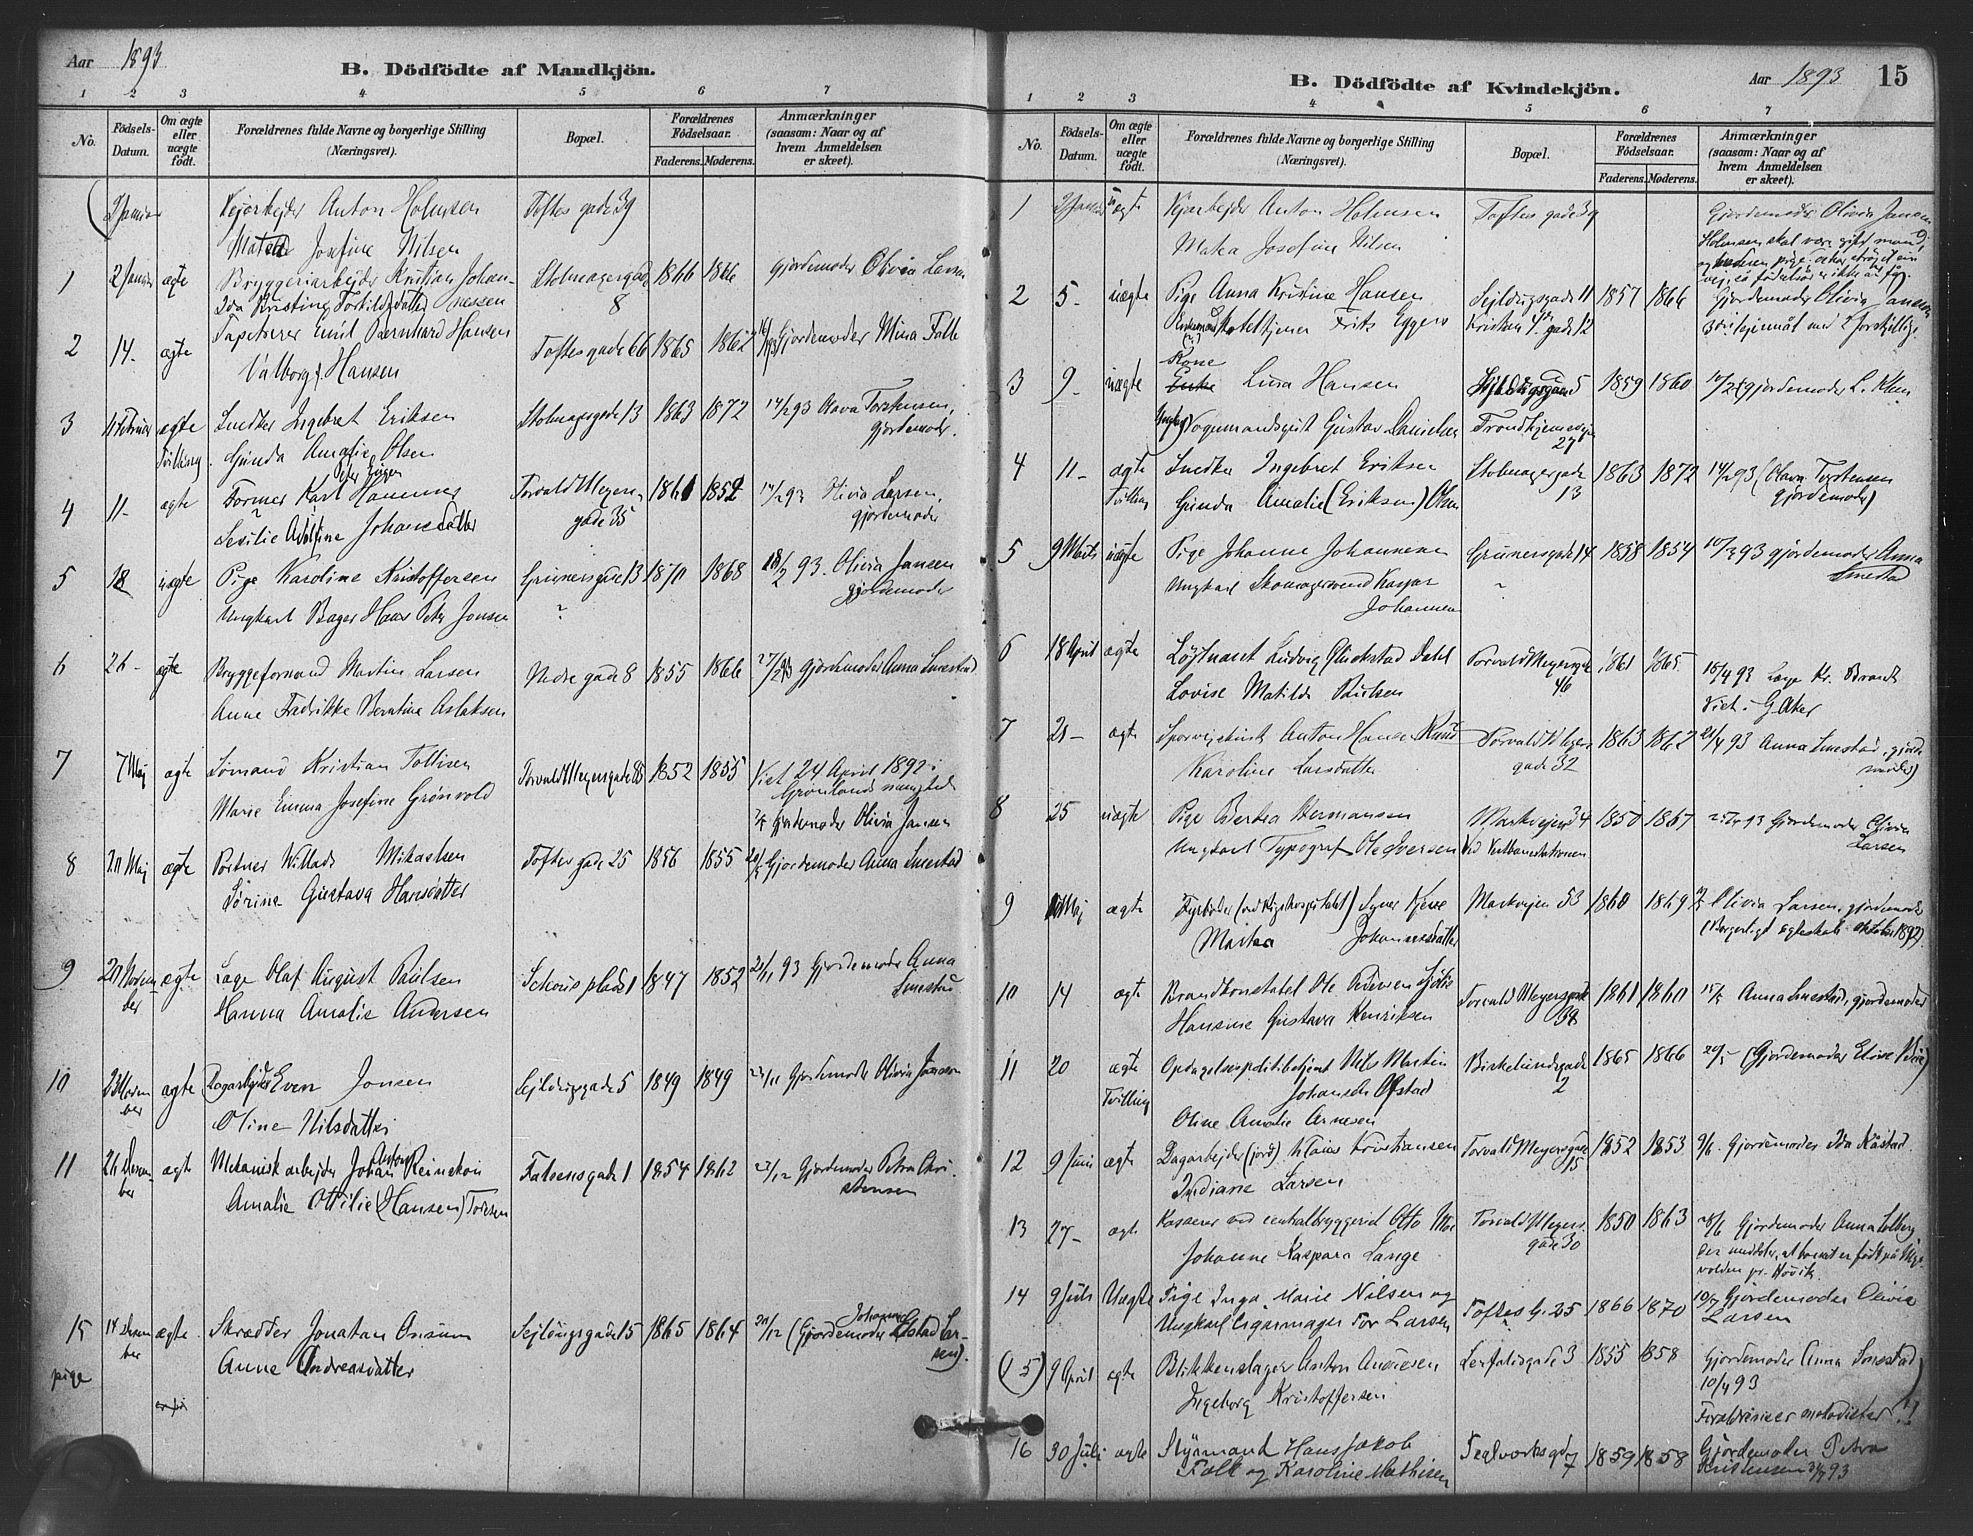 Aar 1893
B. Dödfödte af Mandkjön.
1 2 3 4 5 6 7
No. Födsels-Datum. Om ægte eller uægte födt. Forældrenes fulde Navne og borgerlige Stilling (Næringsvei). Bopæl. Forældrenes Födselsaar. Faderens. Moderens. Anmærkninger (saasom: Naar og af hvem Anmeldelsen er skeet).
Anton Holmsen Toftes gade 39
Josefine Nilsen
1 2 Januar ægte Bryggeriarbejder Kristian Johannessen Stolmagergade 8 1866 1866 Gjordemoder Olivia Larsen
Ida Kristine Torkildsdatter
2 14. ægte Tapetserer Emil Bernhard Hansen Toftesgade 66 1865 1867 Gjordemoder Mina Falk
Valborg Hansen
3 11 Februar ægte Snedker Ingebret Eriksen Stolmagergade 13 1863 1872 14/2 93 Olava Torstensen, gjordemoder.
Tvilling. Gunda Amalie Olsen
4 11- ægte Former Karl Torvald Meyersgade 35 1861 1852 14/2 93 Olivia Larsen, gjordemoder
Adolfine Johansdatter
5 18 uægte Pige Karoline Kristoffersen Grünersgade 13 1870 1868 18/2 93. Olivia Jansen gjordemoder
Ungkarl Bager Hans Peter Jonsen ?
6 26- ægte Bryggeformand Martin Larsen Nedre gade 8 1855 1866 27/2 93 Gjordemoder Anna Smestad
Anne Fredrikke Berntine Aslaksen
7 7 Maj ægte Sømand Kristian Tollisen Torvald Meyersgade 1852 1855 Viet 24 April 1892 i Grønlands menighed
Marie Emma Josefine Grønvold Gjordemoder Olivia Jansen
8 Maj ægte Portner Willads Mikaelsen Toftes gade 25 1856 1855 Gjordemoder Anna Smestad
Sørine Gustava Hansdatter
9 November ægte Læge Olaf August Paulsen Schous plads 1 1847 1852 21/11 93 Gjordemoder Anna Smestad
Hanna Amalie Andersen
10 23 November ægte Dagarbejder Even Jonsen Sejldugsgade 5 1849 1849 23/11 Gjordemoder Olivia Jansen
Oline Nilsdatter
11 December ægte Mekanisk arbejder Johan Anton Reinskou Falsensgade 1 1854 1862 27/12 Gjordemoder Petra Christensen
Amalie Ottilie (Hansen) Toresen
15 14 December ægte Skrædder Jonatan Sejldugsgade 15 1865 1864 20/12 (Gjordemoder Johanne Larsen).
pige Anne Andreasdatter
B. Dödfödte af Kvindekjön.
Aar 1893 15
1 2 3 4 5 6 7
No. Födsels-Datum. Om ægte eller uægte födt. Forældrenes fulde Navne og borgerlige Stilling (Næringsvei). Bopæl. Forældrenes Födselsaar. Faderens. Moderens. Anmærkninger (saasom: Naar og af hvem Anmeldelsen er skeet).
1 uægte Anton Holmsen Toftes gade 39 Gjordemoder Olivia Jansen
Matea Josefine Nilsen Holmsen skal være gift mand,
2 5- uægte Pige Anna Kristine Hansen Sejldugsgade 11 1857 1866 Gjordemoder Olivia Jansen
Hoteltjener Frits Eggers Kristian 4 gade 12
3 9- uægte Kone Lina Hansen 5 1859 1860 10/2 Gjordemoder L. Klem
Vognmandsgut Gustav Danielsen Trondhjemsvejen 27
4 11- ægte Snedker Ingebret Eriksen Stolmagergade 13 1863 1872 14/2 93 (Olava Torstensen gjordemoder)
Tvilling Gunda Amalie (Eriksen) Olsen
5 9 Marts uægte Pige Johanne Johannesen Grünersgade 14 1858 1854 10/3 93 gjordemoder Anna Smestad
Ungkarl Skomagersvend Kaspar Johannesen ?
6 18 April ægte Løjtnant Ludvig Gluckstad Dahl Torvald Meyersgade 46 1861 1865. 18/4 93 Læge Kr. Brandt
Lovise Matilde Paulsen Viet i G. Aker
7 21- ægte Anton Hansen Torvald Meyersgade 32 1863 1862 21/4 93 Anna Smestad, gjordemoder)
Karoline Larsdatter
8 25 uægte Pige Bertea Hermansen Markvejen 34 1850 1867 25/4 93 Gjordemoder Olivia Larsen
Ungkarl Typograf Ole Iversen Ved Vestbanestationen
9 Maj ægte Fyrbøder (ved Rigshospitalet) Markvejen 53 1860 1869 Olivia Larsen, gjordemoder
Johannesdatter (Borgerligt ægteskab Oktober 1892).
10 14 ægte Brandkonstabel Ole Pedersen Torvald Meyersgade 38 1861 1860 15/5 Anna Smestad, gjordemoder
Hansine Gustava Henriksen
11 20 ægte Opdagelsespolitibetjent Nils Martin Johansen Øfstad Birkelundsgade 2 1865 1866 20/5 (Gjordemoder Elise
Tvilling Oline Amalie Arnesen
12 9 Juni ægte Dagarbejder (jord) Klaus Kristiansen Torvald Meyersgade 15 1852 1853 9/6. Gjordemoder Ida Råstad
Indiane Larsen
13 27- ægte Kasserer ved centralbryggeriet Otto Moe Torvald Meyersgade 30 1850 1863 28/6 Gjordemoder Anna Solberg
Johanne Kaspara Lange der melder, at barnet er født på
volden pr. Høvik.
14 9 Juli Uægte Pige Inga Marie Nilsen og Toftes G. 25 1866 1870 10/7 Gjordemoder Olivia
Ungkarl Cigarmager Tor Larsen Larsen
(15) 9 April ægte Blikkenslager Anton Andresen gade 3 1855 1858 Gjordemoder Anna Smestad
Ingeborg Kristoffersen 10/4 93
Forældrene er metodister
16 30 Juli ægte Styrmand Hans Jakob Teglverksgd 7 1859 1858 Gjordemoder Petra
Falk og Karoline Mathisen Kristensen 31/7 93